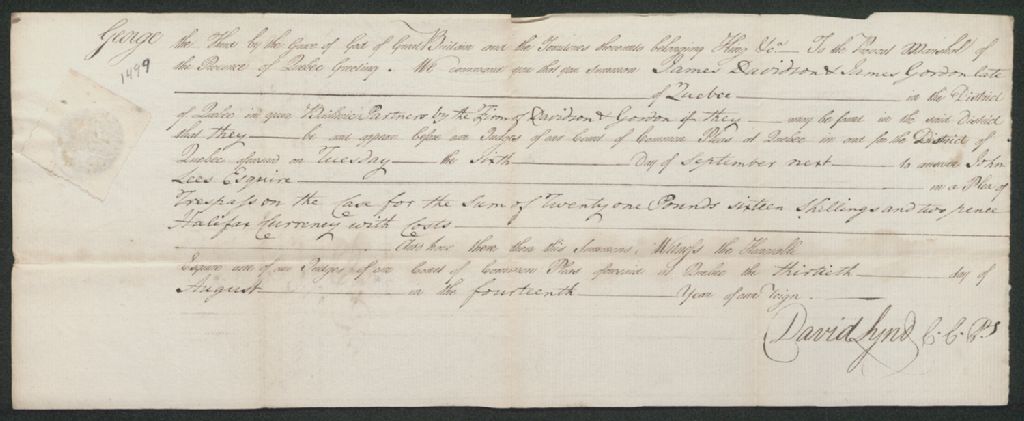 George the Third by the Grace of God of Great Britain and the Territories thereunto belonging King &c.a — To the Provost Marshal of
1499
the Province of Quebec Greeting. We command you that you summon James Davidson & James Gordon late
of Quebec in the District
of Quebec in your Bailiwic Partners by the Firm of Davidson & Gordon if they may be found in the said District
that they be and appear before our Judges of our Court of Common Pleas at Quebec in and for the District of
Quebec aforesaid on Tuesday the Sixth Day of September next to answer John
Lees Esquire in a Plea of
Trespass on the Case for the Sum of Twenty one Pounds sixteen Shillings and two pence
Halifax Currency with Costs
And have there then this Summons. Witness the Honorable
Esquire one of our Judges of our Court of Common Pleas aforesaid at Quebec the thirtieth day of
August in the fourteenth Year of our Reign.
David Lynd C. C. Ps